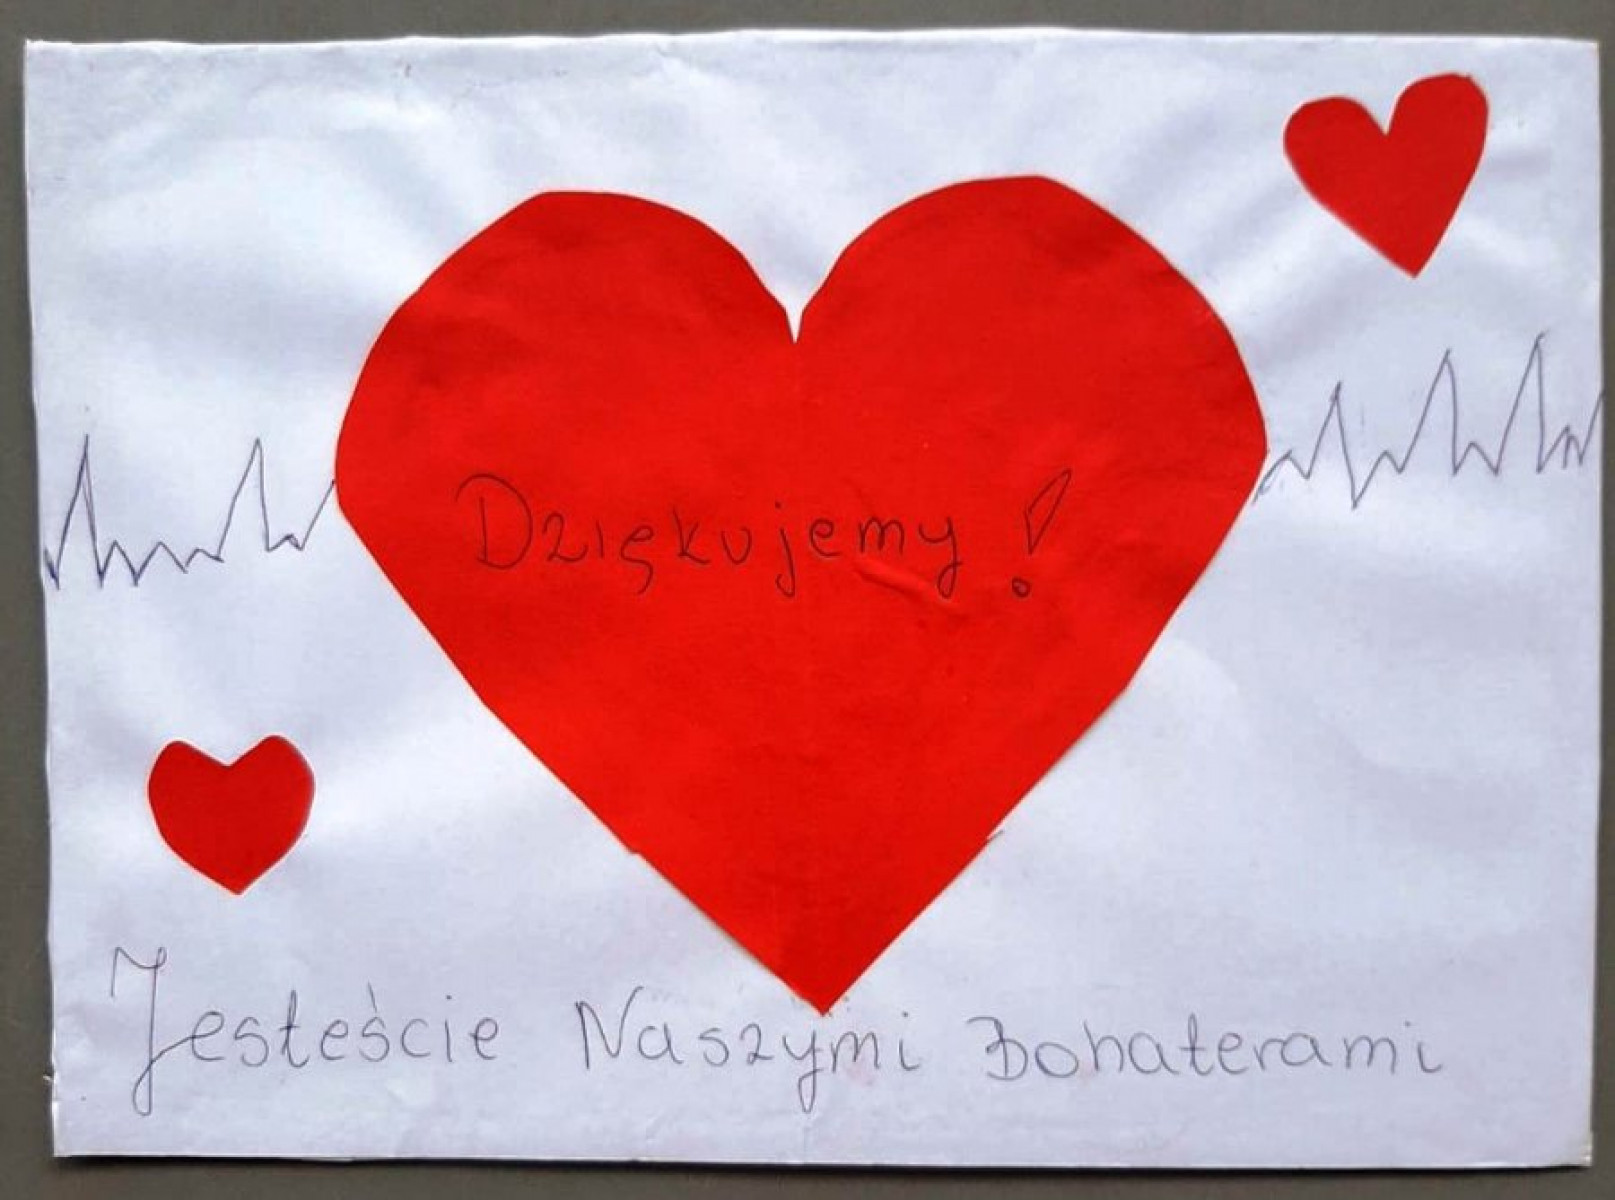 Dziękujemy!
Jesteście Naszymi Bohaterami